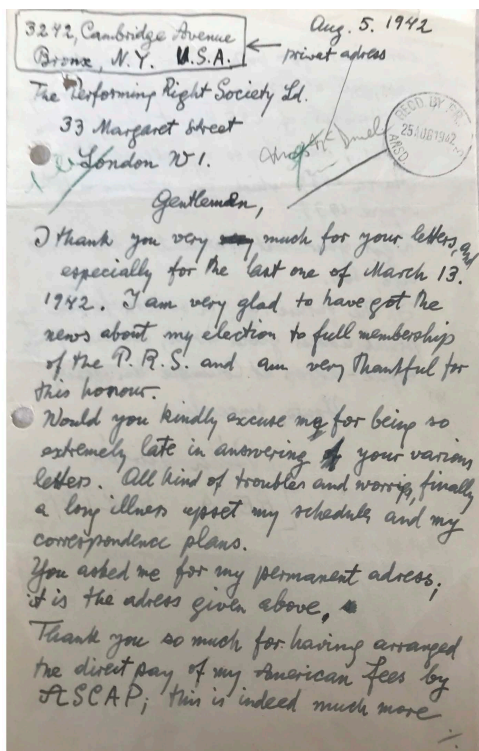 3242, Cambridge Avenue
Bronx, N.Y. U.S.A.
Aug. 5. 1942
privat adress
The Performing Right Society Ld.
33 Margaret Street
London W1.
RECD BY P.R.
25 AUG 1942
Gentleman,
I thank you very much for your letters, and
especially for the last one of March 13.
1942. I am very glad to have got the
news about my election to full membership
of the P.R.S. and am very thankful for
this honour.
Would you kindly excuse me for being so
extremely late in answering your various
letters. All kind of troubles and worries, finally
a long illness upset my schedule and my
correspondence plans.
You asked me for my permanent adress;
it is the adress given above.
Thank you so much for having arranged
the direct pay of my American fees by
ASCAP; this is indeed much more